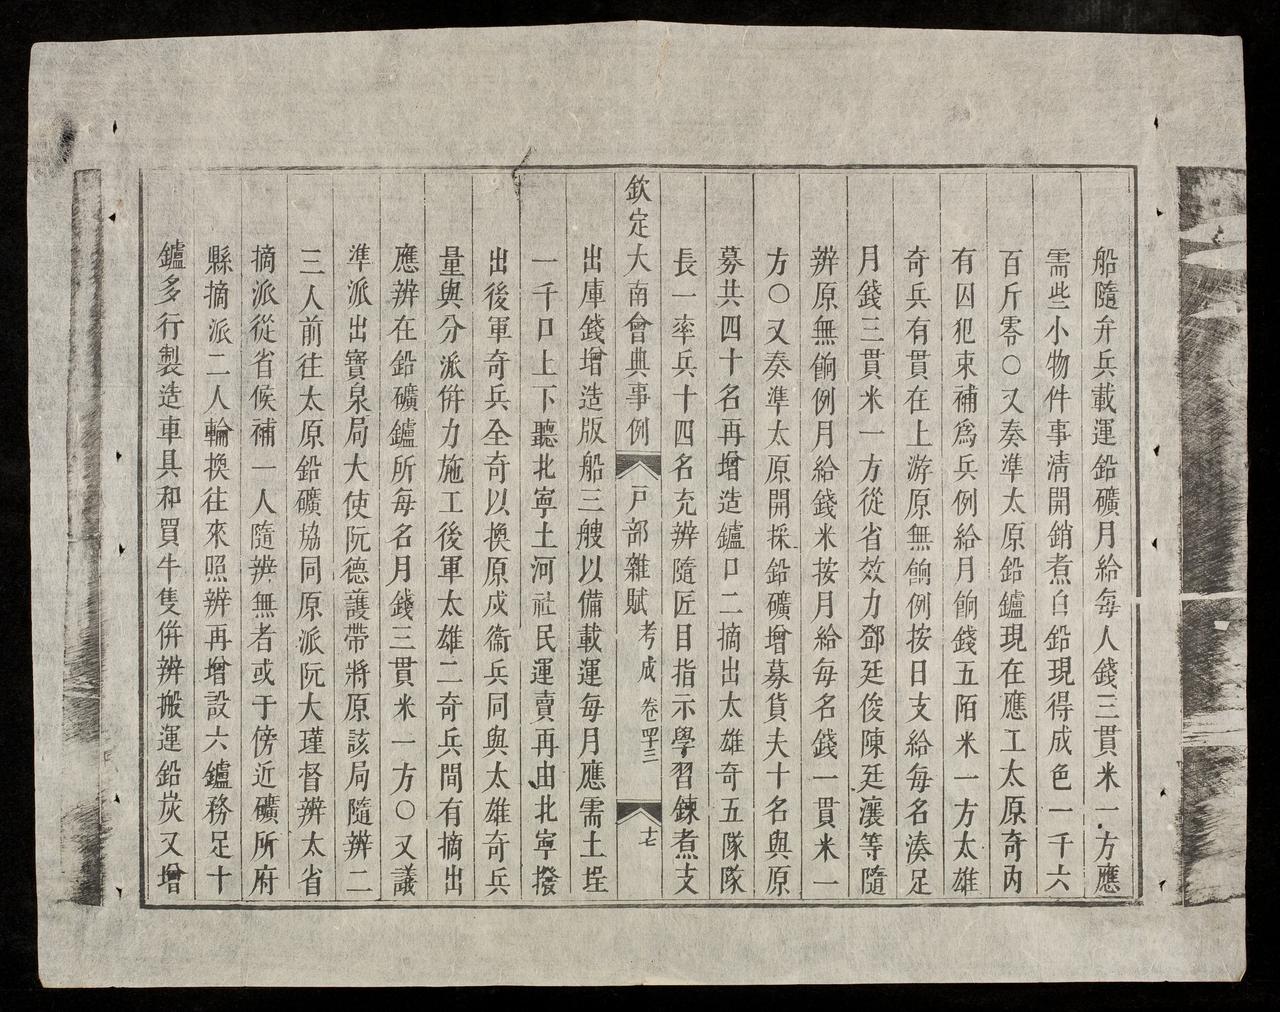 船隨弁兵載運鉛礦月給每人錢三貫米一方應
需些小物件事清開銷煮白鉛現得成色一千六
百斤零○又奏準太原鉛鑪現在應工太原奇内
有囚犯束補爲兵例給月餉錢五陌米一方太雄
奇兵有貫在上游原無餉例按日支給每名湊足
月錢三貫米一方從省效力鄧廷俊陳廷瀼等隨
辨原無餉例月給錢米按月給每名錢一貫米一
方○又奏準太原開採鉛礦增募貨夫十名與原
募共四十名再增造鑪口二摘出太雄奇五隊隊
長一率兵十四名充辨隨匠目指示學習鍊煮支
欽定大南會典事例 戸部雜賦 考成 卷四十三 十七
出庫錢增造版船三艘以備載運每月應需土埕
一千口上下聽北寧土河社民運賣再由北寧撥
出後軍奇兵全奇以換原成衞兵同與太雄奇兵
量與分派併力施工後軍太雄二奇兵間有摘出
應辨在鉛礦鑪所每名月錢三貫米一方○又議
準派出寶泉局大使阮德護帶將原該局隨辨二
三人前往太原鉛礦協同原派阮大瑾督辨太省
摘派從省候補一人隨辨無者或于傍近礦所府
縣摘派二人輪換往來照辨再增設六鑪務足十
鑪多行製造車具和買牛隻併辨搬運鉛炭又增